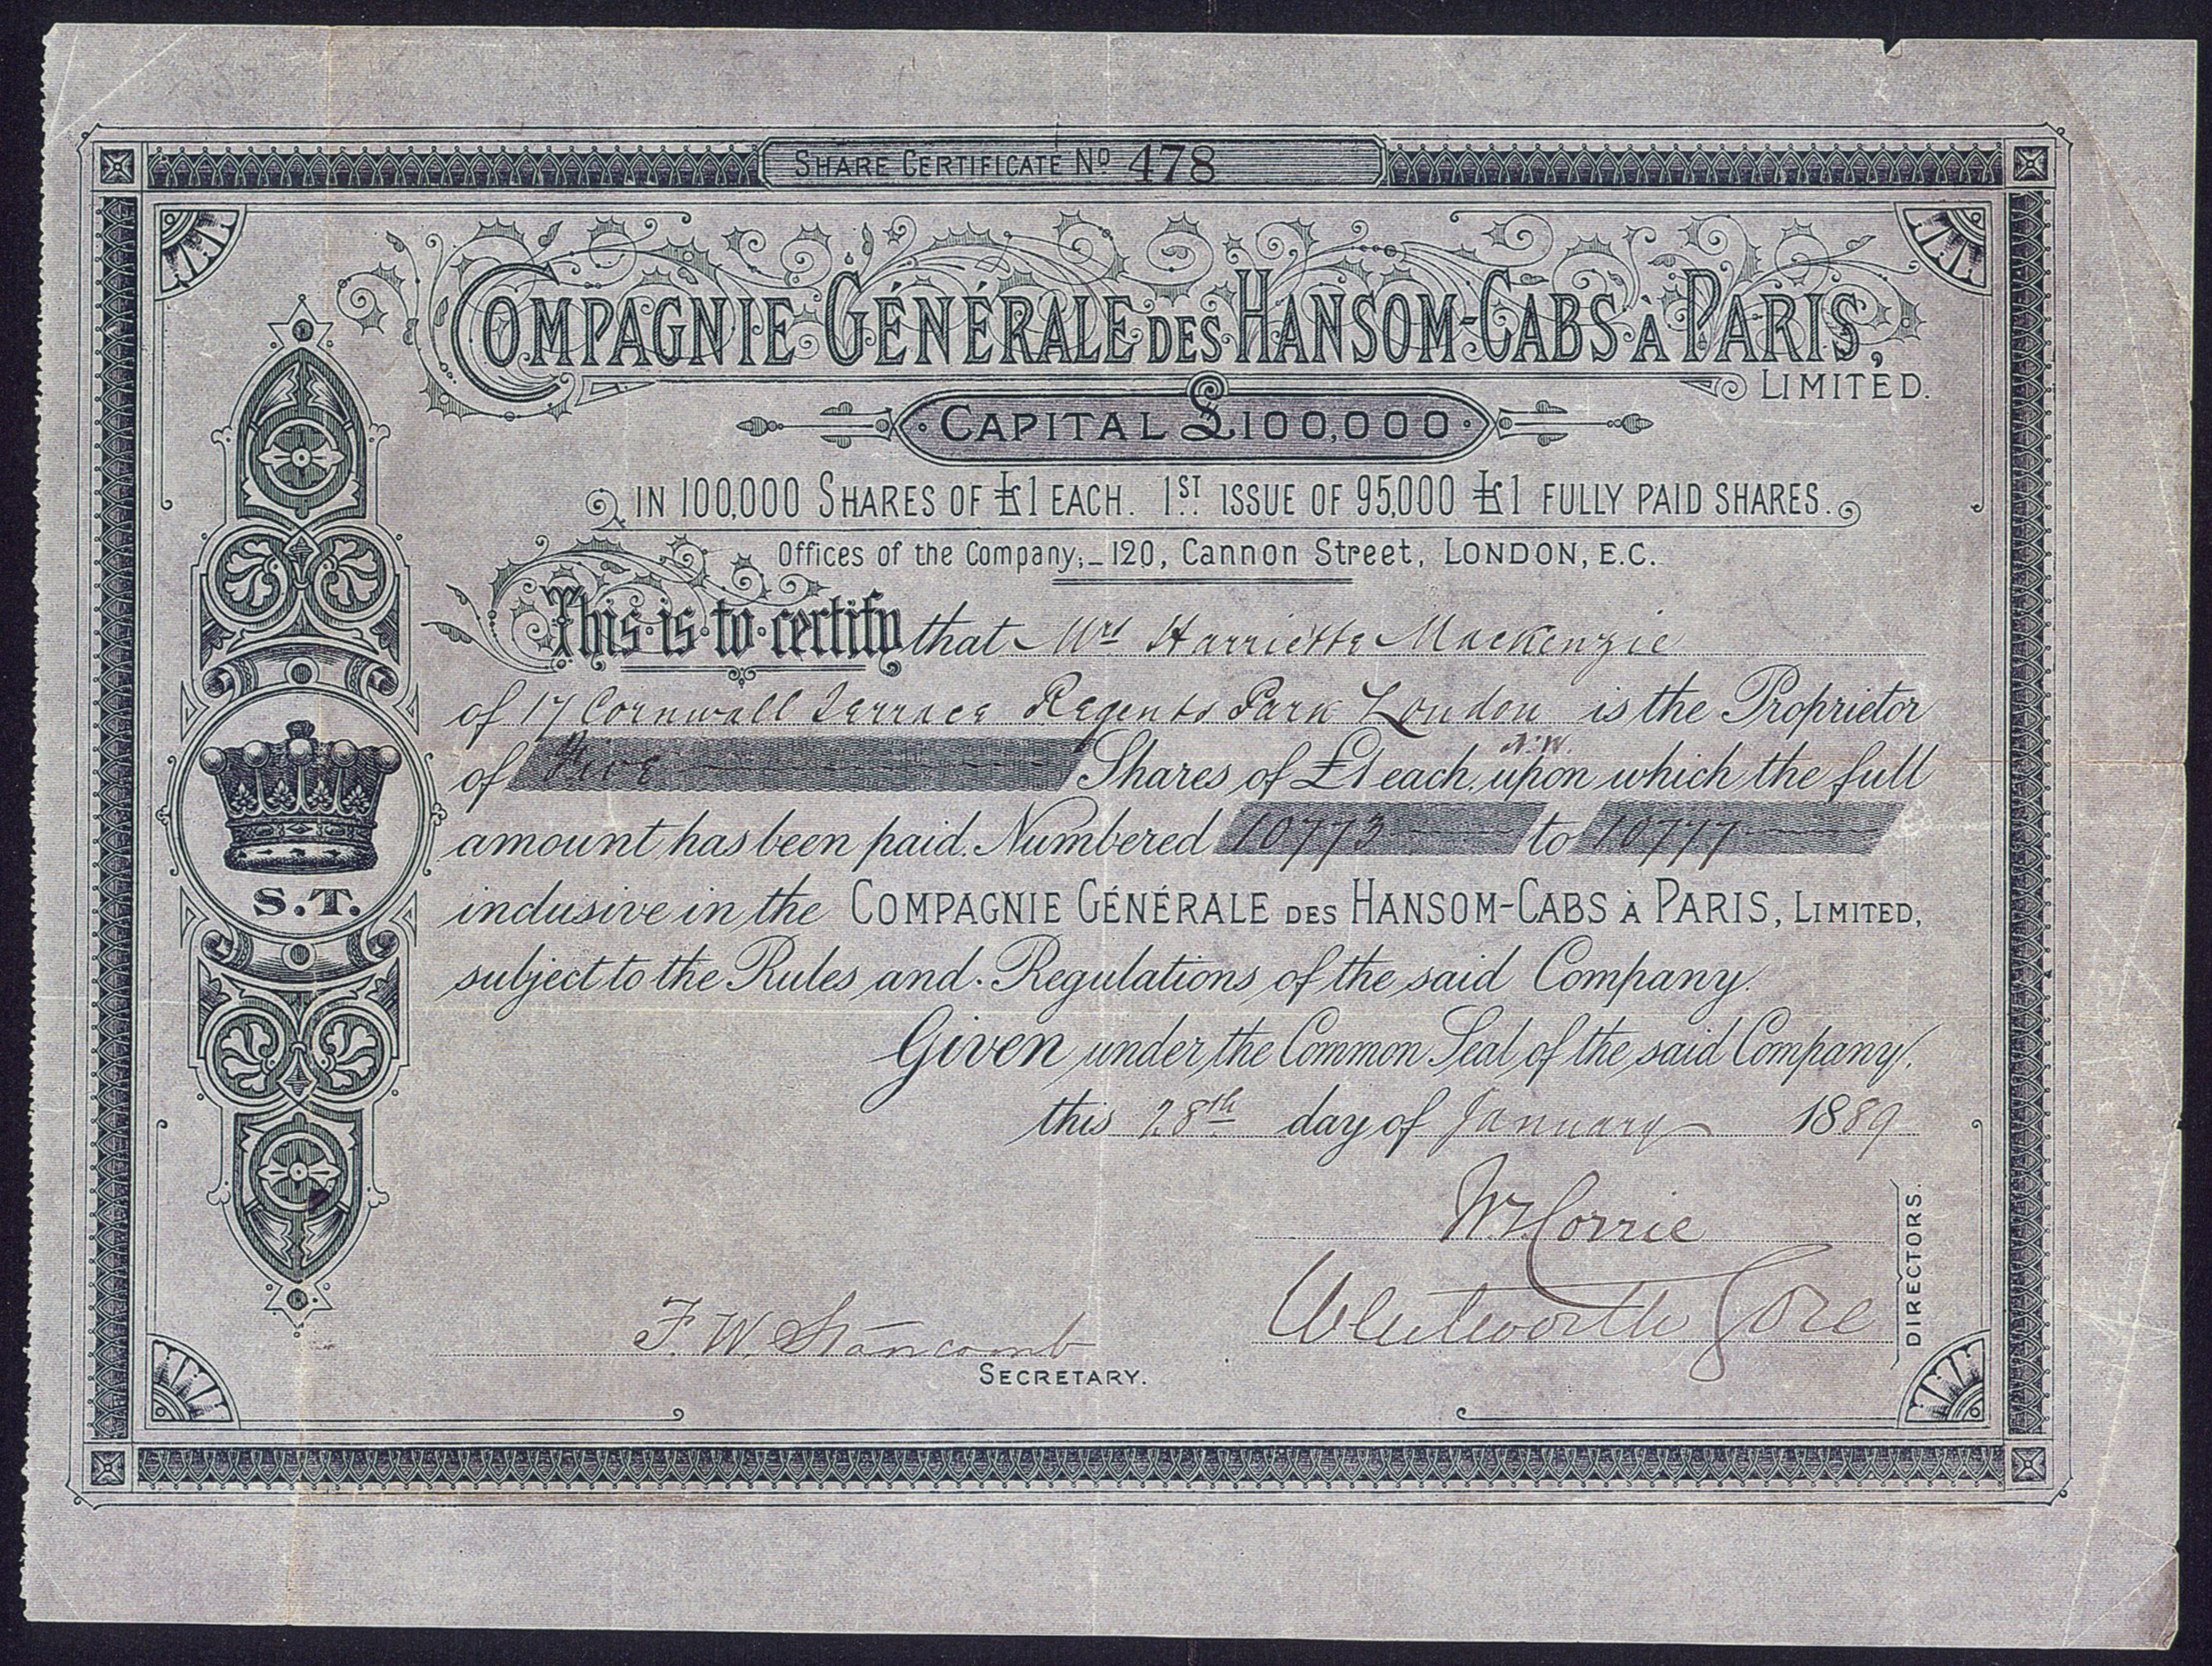 SHARE CERTIFICATE No 478
COMPAGNIE GÉNÉRALE DES HANSOM-CABS À PARIS,
LIMITED.
CAPITAL £100,000
IN 100,000 SHARES OF £1 EACH. 1ST ISSUE OF 95,000 £1 FULLY PAID SHARES.
Offices of the Company:– 120, Cannon Street, LONDON, E.C.
This is to certify that Mrs Harriette Mackenzie
of 17 Cornwall Terrace Regents Park London is the Proprietor
N.W.
of Five Shares of £1 each, upon which the full
amount has been paid. Numbered 10773 to 10777
inclusive in the COMPAGNIE GÉNÉRALE DES HANSOM-CABS À PARIS, LIMITED,
subject to the Rules and Regulations of the said Company.
Given under the Common Seal of the said Company,
this 28th day of January 1889
S.T.
W Corrie
Wentworth Gore
DIRECTORS.
F. W. Stancomb
SECRETARY.